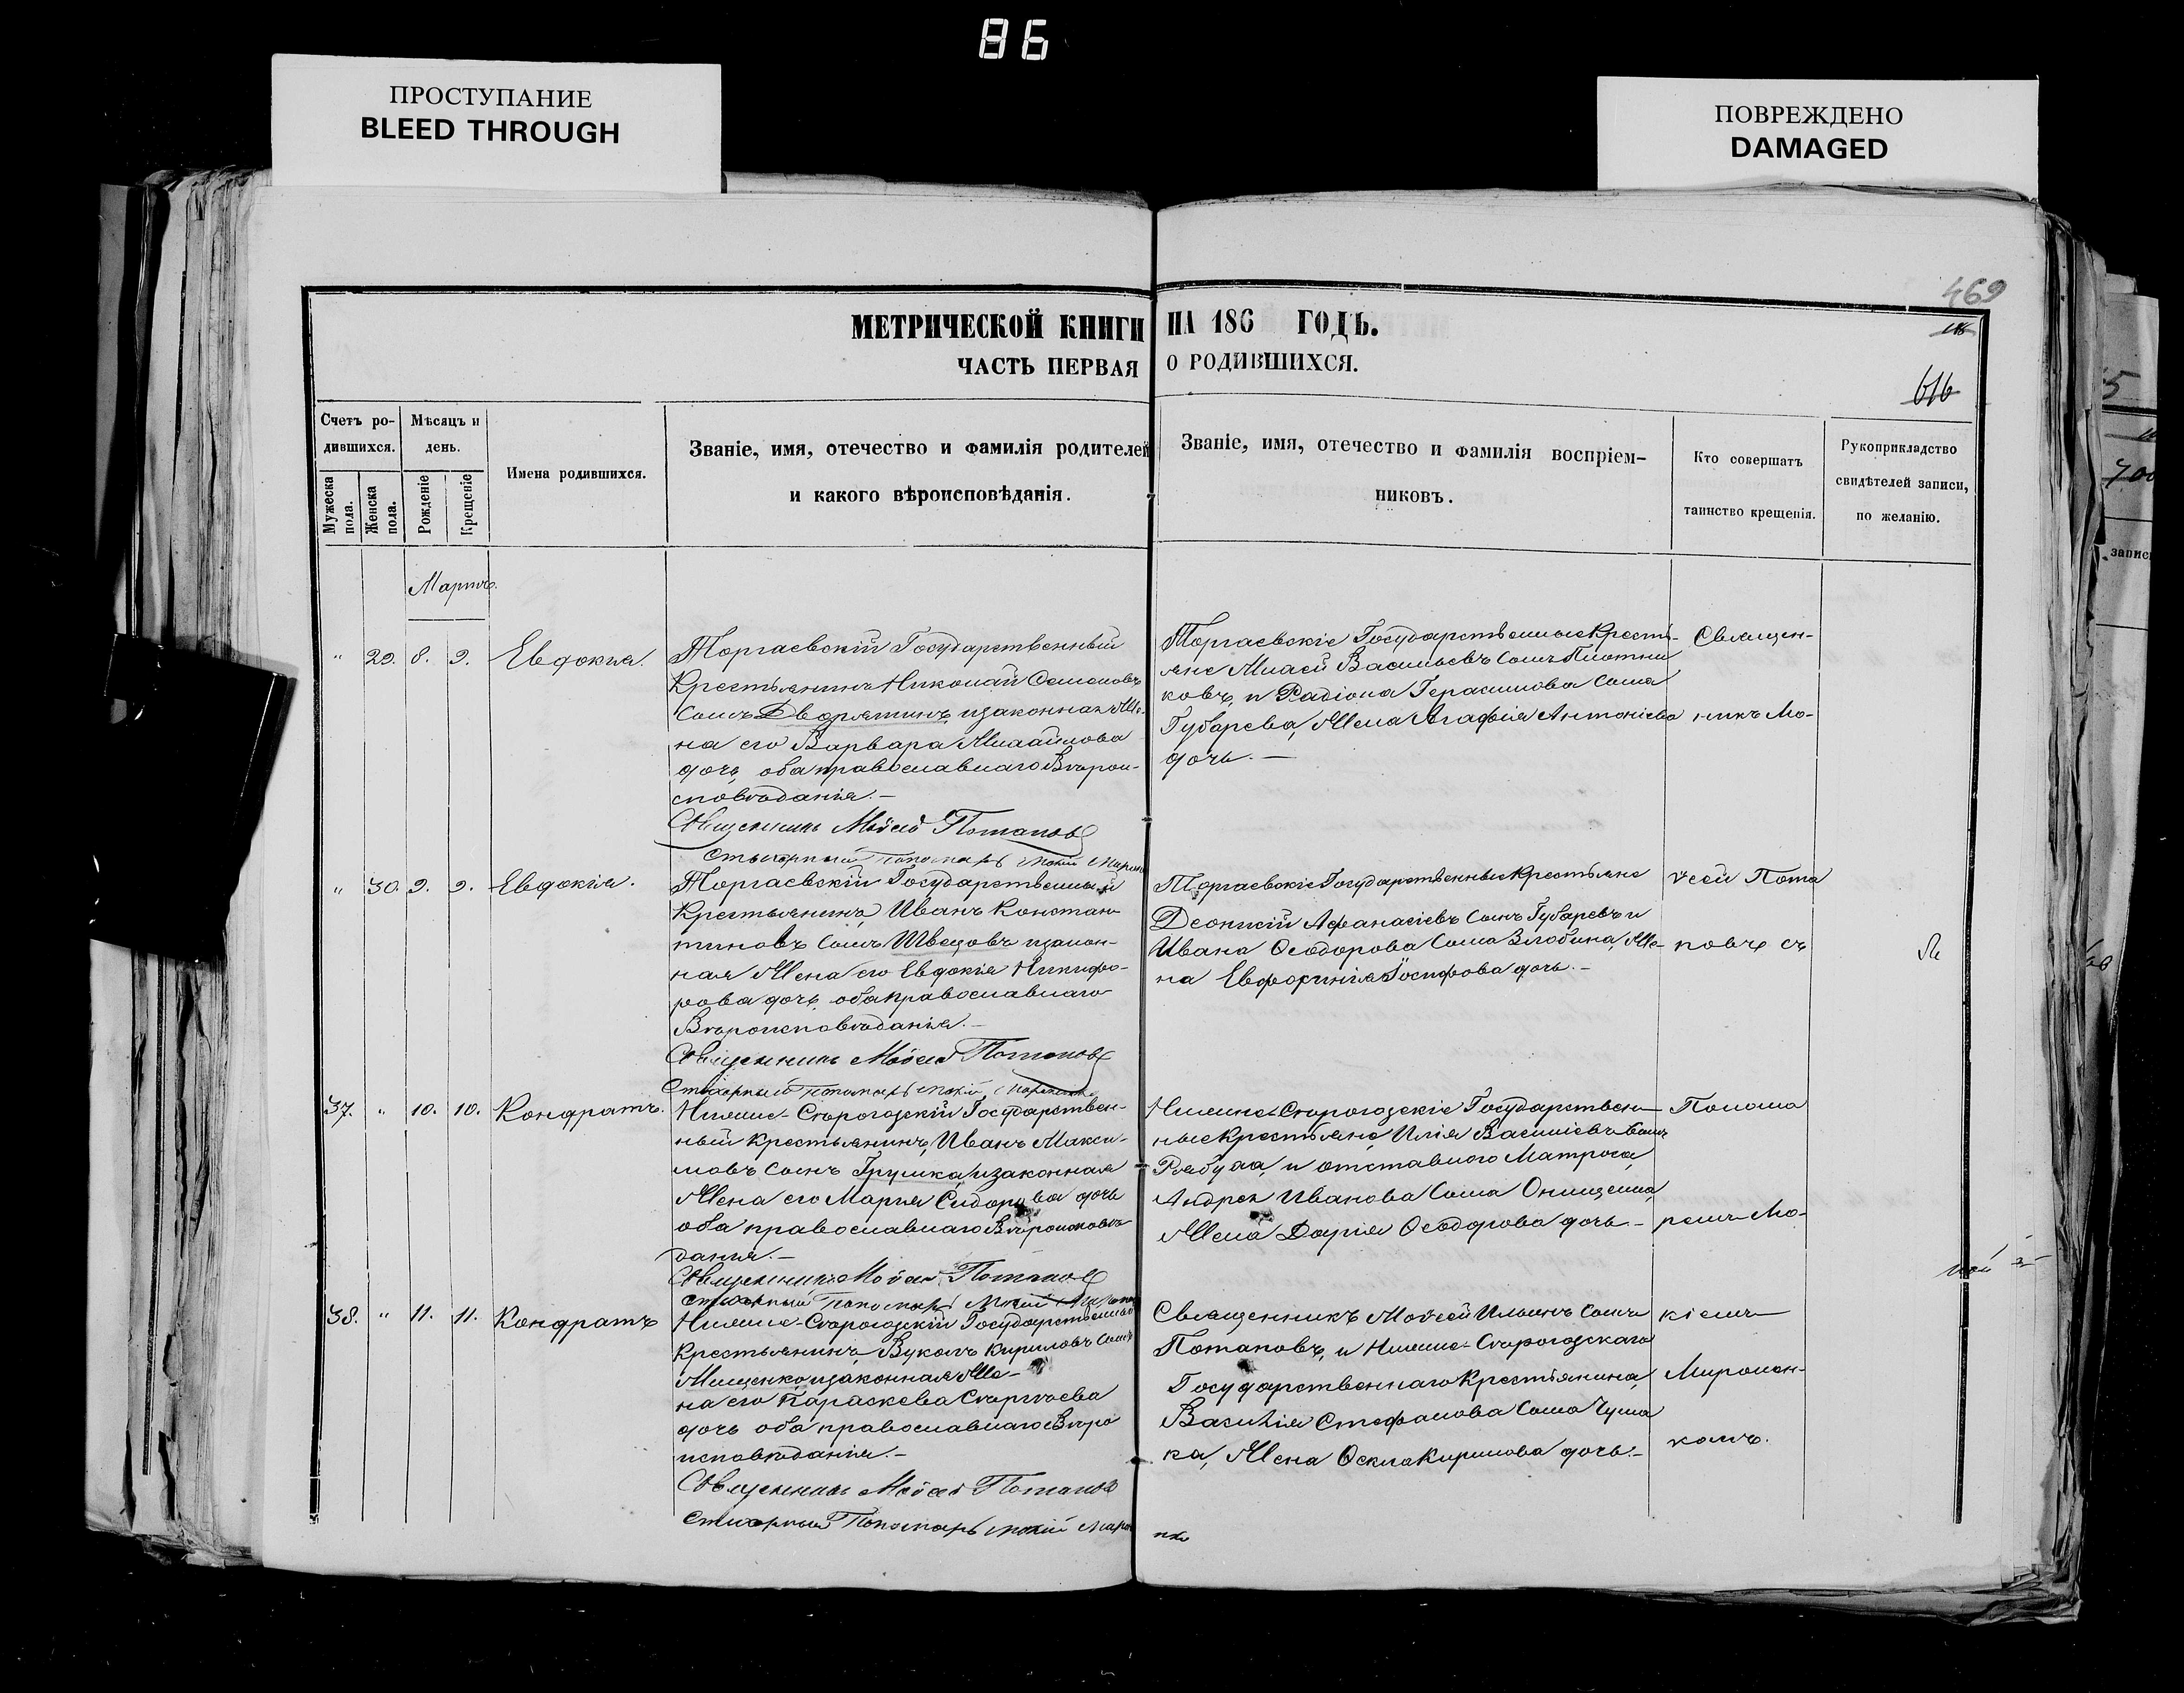 86
ПРОСТУПАНИЕ
BLEED THROUGH
ПОВРЕЖДЕНО
DAMAGED
469
616
МЕТРИЧЕСКОЙ КНИГИ НА 186 ГОДЪ.
ЧАСТЬ ПЕРВАЯ О РОДИВШИХСЯ.
Счетъ ро-
дившихся.
Мужеска пола.
Женска пола.
Мѣсяцъ и
день.
Рожденіе
Крещеніе
Имена родившихся.
Званіе, имя, отечество и фамилія родителей
и какого вѣроисповѣданія.
Званіе, имя, отечество и фамилія воспріем-
никовъ.
Кто совершатъ
таинство крещенія.
Рукоприкладство
свидѣтелей записи,
по желанію.
Мартъ.
" 29. 8. 9. Евдокія.
Торгаевскій Государственный
Крестьянинъ Николай Семеновъ
Сынъ Дворятинъ, изаконная Же-
на его Варвара Михайлова
дочь, оба православнаго Вѣрои-
сповѣданія.-
Священникъ Мойсей Потаповъ
Стихарный Пономарь Мокій Мирон
Торгаевскіе Государственные Кресть-
яне Васильевъ Сынъ Плотни
ковъ, и Радіона Герасимова Сына
Губарева, Жена Агафія Антоніева
дочь.-
Священ-
никъ Мо-
" 30. 9. 9. Евдокія.
Торгаевскій Государственный
Крестьянинъ Иванъ Констан-
тиновъ Сынъ Швецовъ изакон-
ная Жена его Евдокія Никифо-
рова дочь, оба православнаго
Вѣроисповѣданія.-
Священникъ Мойсей Потаповъ
Стихарный Пономарь Мокій
Торгаевскіе Государственные Крестьяне
Деонисій Афанасіевъ Сынъ Губаревъ и
Ивана Ѳеодорова Сына Злобина, Же-
на Евфросинія Іосифова дочь.-
ѵсей Пота
повъ съ
37. " 10. 10. Кондратъ.
Нижне-Сѣрогозскій Государствен-
ный Крестьянинъ, Иванъ Макси-
мовъ Сынъ Грушка, изаконная
Жена его Марія Сидорова дочь
оба православнаго Вѣроисповѣ-
данія.-
Священникъ Мойсей Потаповъ
Стихарный Пономарь Мокій
Нижне-Сѣрогозскіе Государствен-
ные Крестьяне Илія Василіевъ Сынъ
и отставного Матроса,
Андрея Иванова Сына Онищенка,
Жена Дарія Ѳеодорова дочь.-
Понома
ремъ Мо-
38. " 11. 11. Кондратъ
Нижне-Сѣрогозскій Государственный
Крестьянинъ, Вуколъ Кириловъ Сынъ
Мищенко, изаконная Же-
на его Параскева Сѣргѣева
дочь оба православнаго Вѣро
исповѣданія.-
Священникъ Мойсей Потаповъ
Стихарный Пономарь Мокій Миро
нко
Священникъ Моѵсей Ильинъ Сынъ
Потаповъ, и Нижне-Сѣрогозскаго
Государственнаго Крестьянина,
Василія Стефанова Сына Чума
ка, Жена Ѳекла Кирилова дочь.-
кіемъ
Миронен-
комъ.